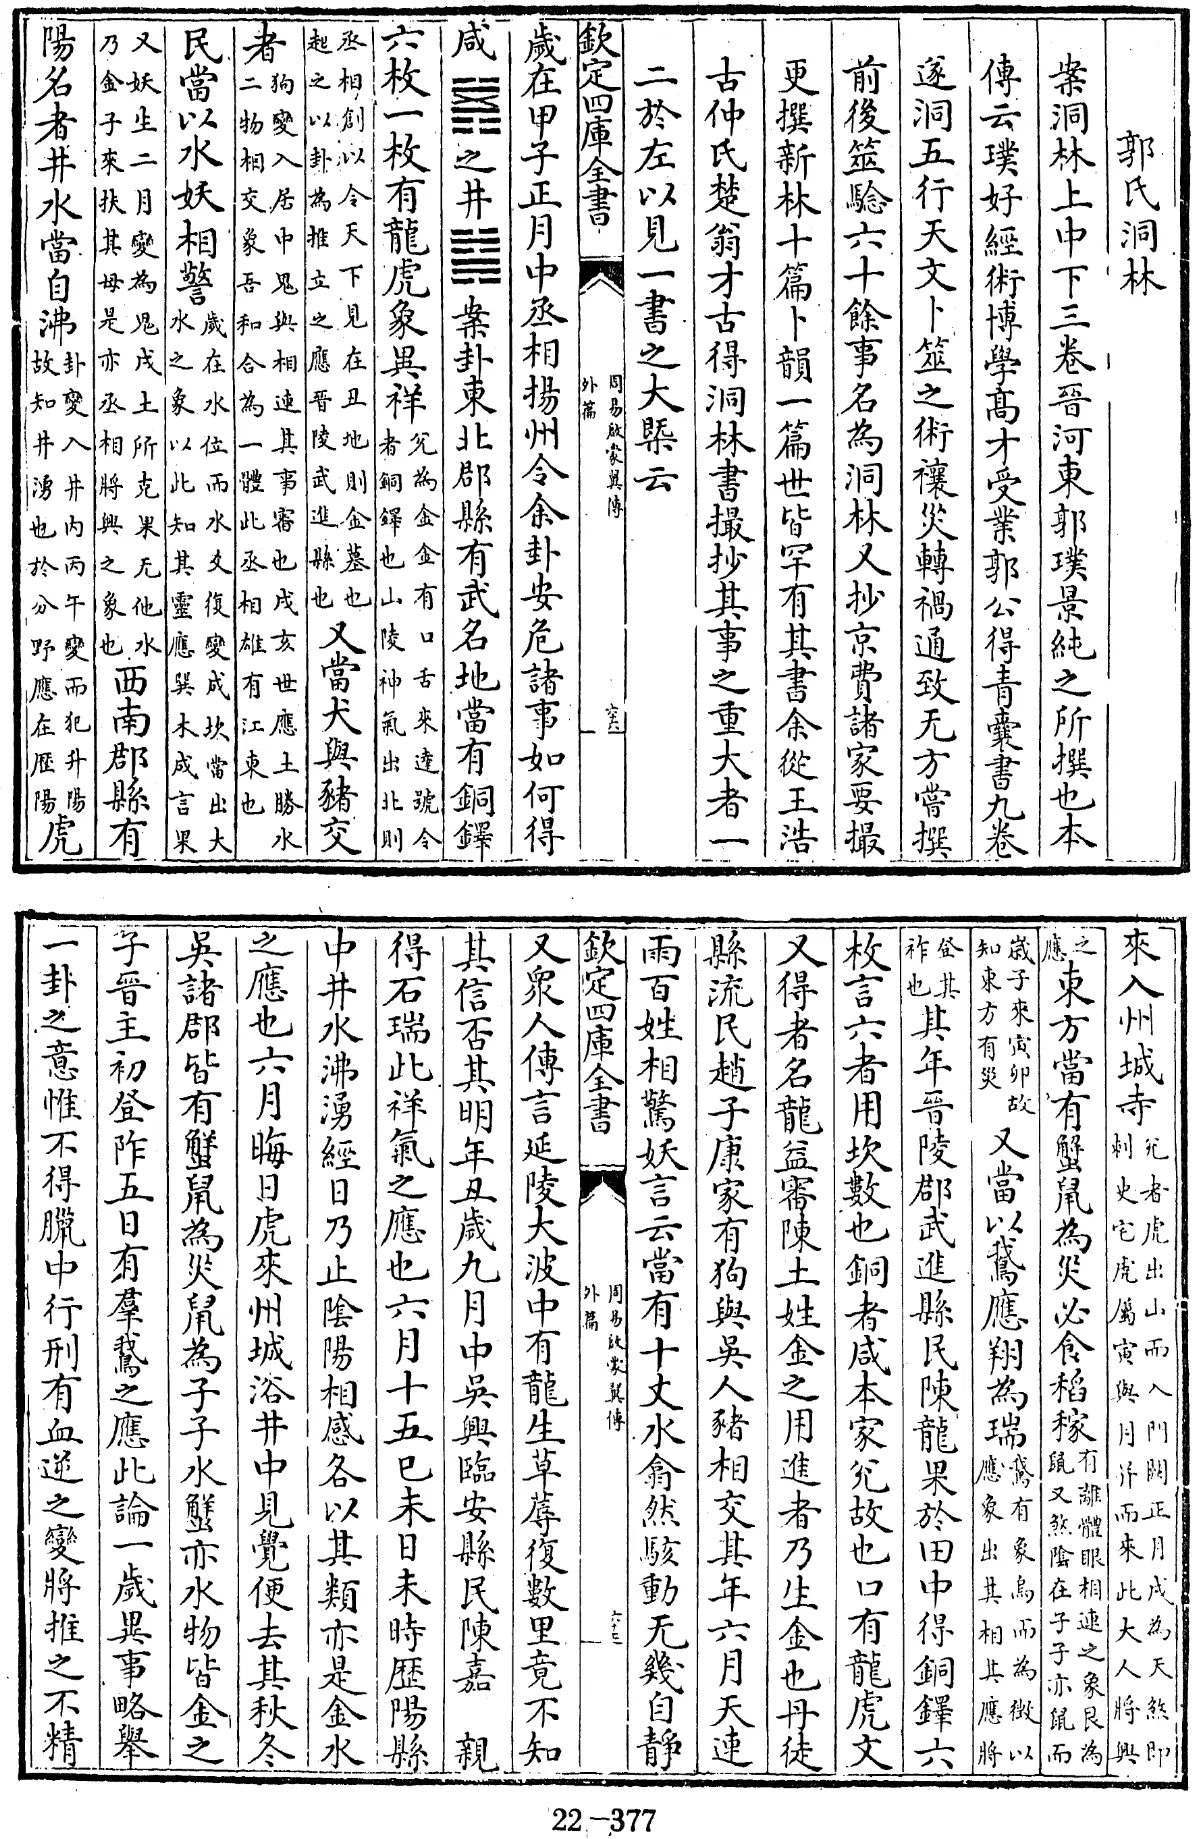 郭氏洞林
案洞林上中下三卷晉河東郭璞景純之所撰也本
傳云璞好經術博學髙才受業郭公得青囊書九卷
遂洞五行天文卜筮之術禳災轉禍通致无方嘗撰
前後筮驗六十餘事名為洞林又抄京費諸家要撮
更撰新林十篇卜韻一篇世皆罕有其書余從王浩
古仲氏楚翁才古得洞林書撮抄其事之重大者一
二於左以見一書之大槩云
欽定四庫全書
周易啟蒙翼傳
外篇
歲在甲子正月中丞相揚州令余卦安危諸事如何得
咸䷞之井䷯案卦東北郡縣有武名地當有銅鐸
六枚一枚有龍虎象異祥兊為金金有口舌來達號令
者銅鐸也山陵神氣出北則
丞相創以令天下見在丑地則金墓也
起之以卦為推立之應晉陵武進縣也又當犬與豬交
者狗變入居中鬼與相連其事審也戌亥世應土勝水
二物相交象吾和合為一體此丞相雄有江東也
民當以水妖相警歲在水位而水爻復變成坎當出大
水之象以此知其靈應巽木成言果
又妖生二月變為鬼戌土所克果无他水
乃金子來扶其母是亦丞相將興之象也西南郡縣有
陽名者井水當自沸卦變入井內丙午變而犯升陽
故知井湧也於分野應在歴陽虎
來入州城寺兊者虎出山而入門闕正月戌為天煞即
刺史宅虎屬寅與月幷而來此大人將興
之
應東方當有蟹鼠為災必食稻稼有離體眼相連之象艮為
鼠又煞陰在子子亦鼠而
歲子來寅卯故
知東方有災又當以鵝應翔為瑞鵝有象鳥而為徵以
應象出其相其應將
登其
祚也其年晉陵郡武進縣民陳龍果於田中得銅鐸六
枚言六者用坎數也銅者咸本家兊故也口有龍虎文
又得者名龍益審陳土姓金之用進者乃生金也丹徒
縣流民趙子康家有狗與吳人豬相交其年六月天連
雨百姓相驚妖言云當有十丈水翕然駭動无幾自靜
欽定四庫全書
周易啟蒙翼傳
外篇
又衆人傳言延陵大波中有龍生草蓐復數里竟不知
其信否其明年丑歲九月中吳興臨安縣民陳嘉　親
得石瑞此祥氣之應也六月十五巳未日未時歴陽縣
中井水沸湧經日乃止陰陽相感各以其類亦是金水
之應也六月晦日虎來州城浴井中見覺便去其秋冬
吳諸郡皆有蟹鼠為災鼠為子子水蟹亦水物皆金之
子晉主初登阼五日有羣鵝之應此論一歲異事略舉
一卦之意惟不得臘中行刑有血逆之變將推之不精
22-377